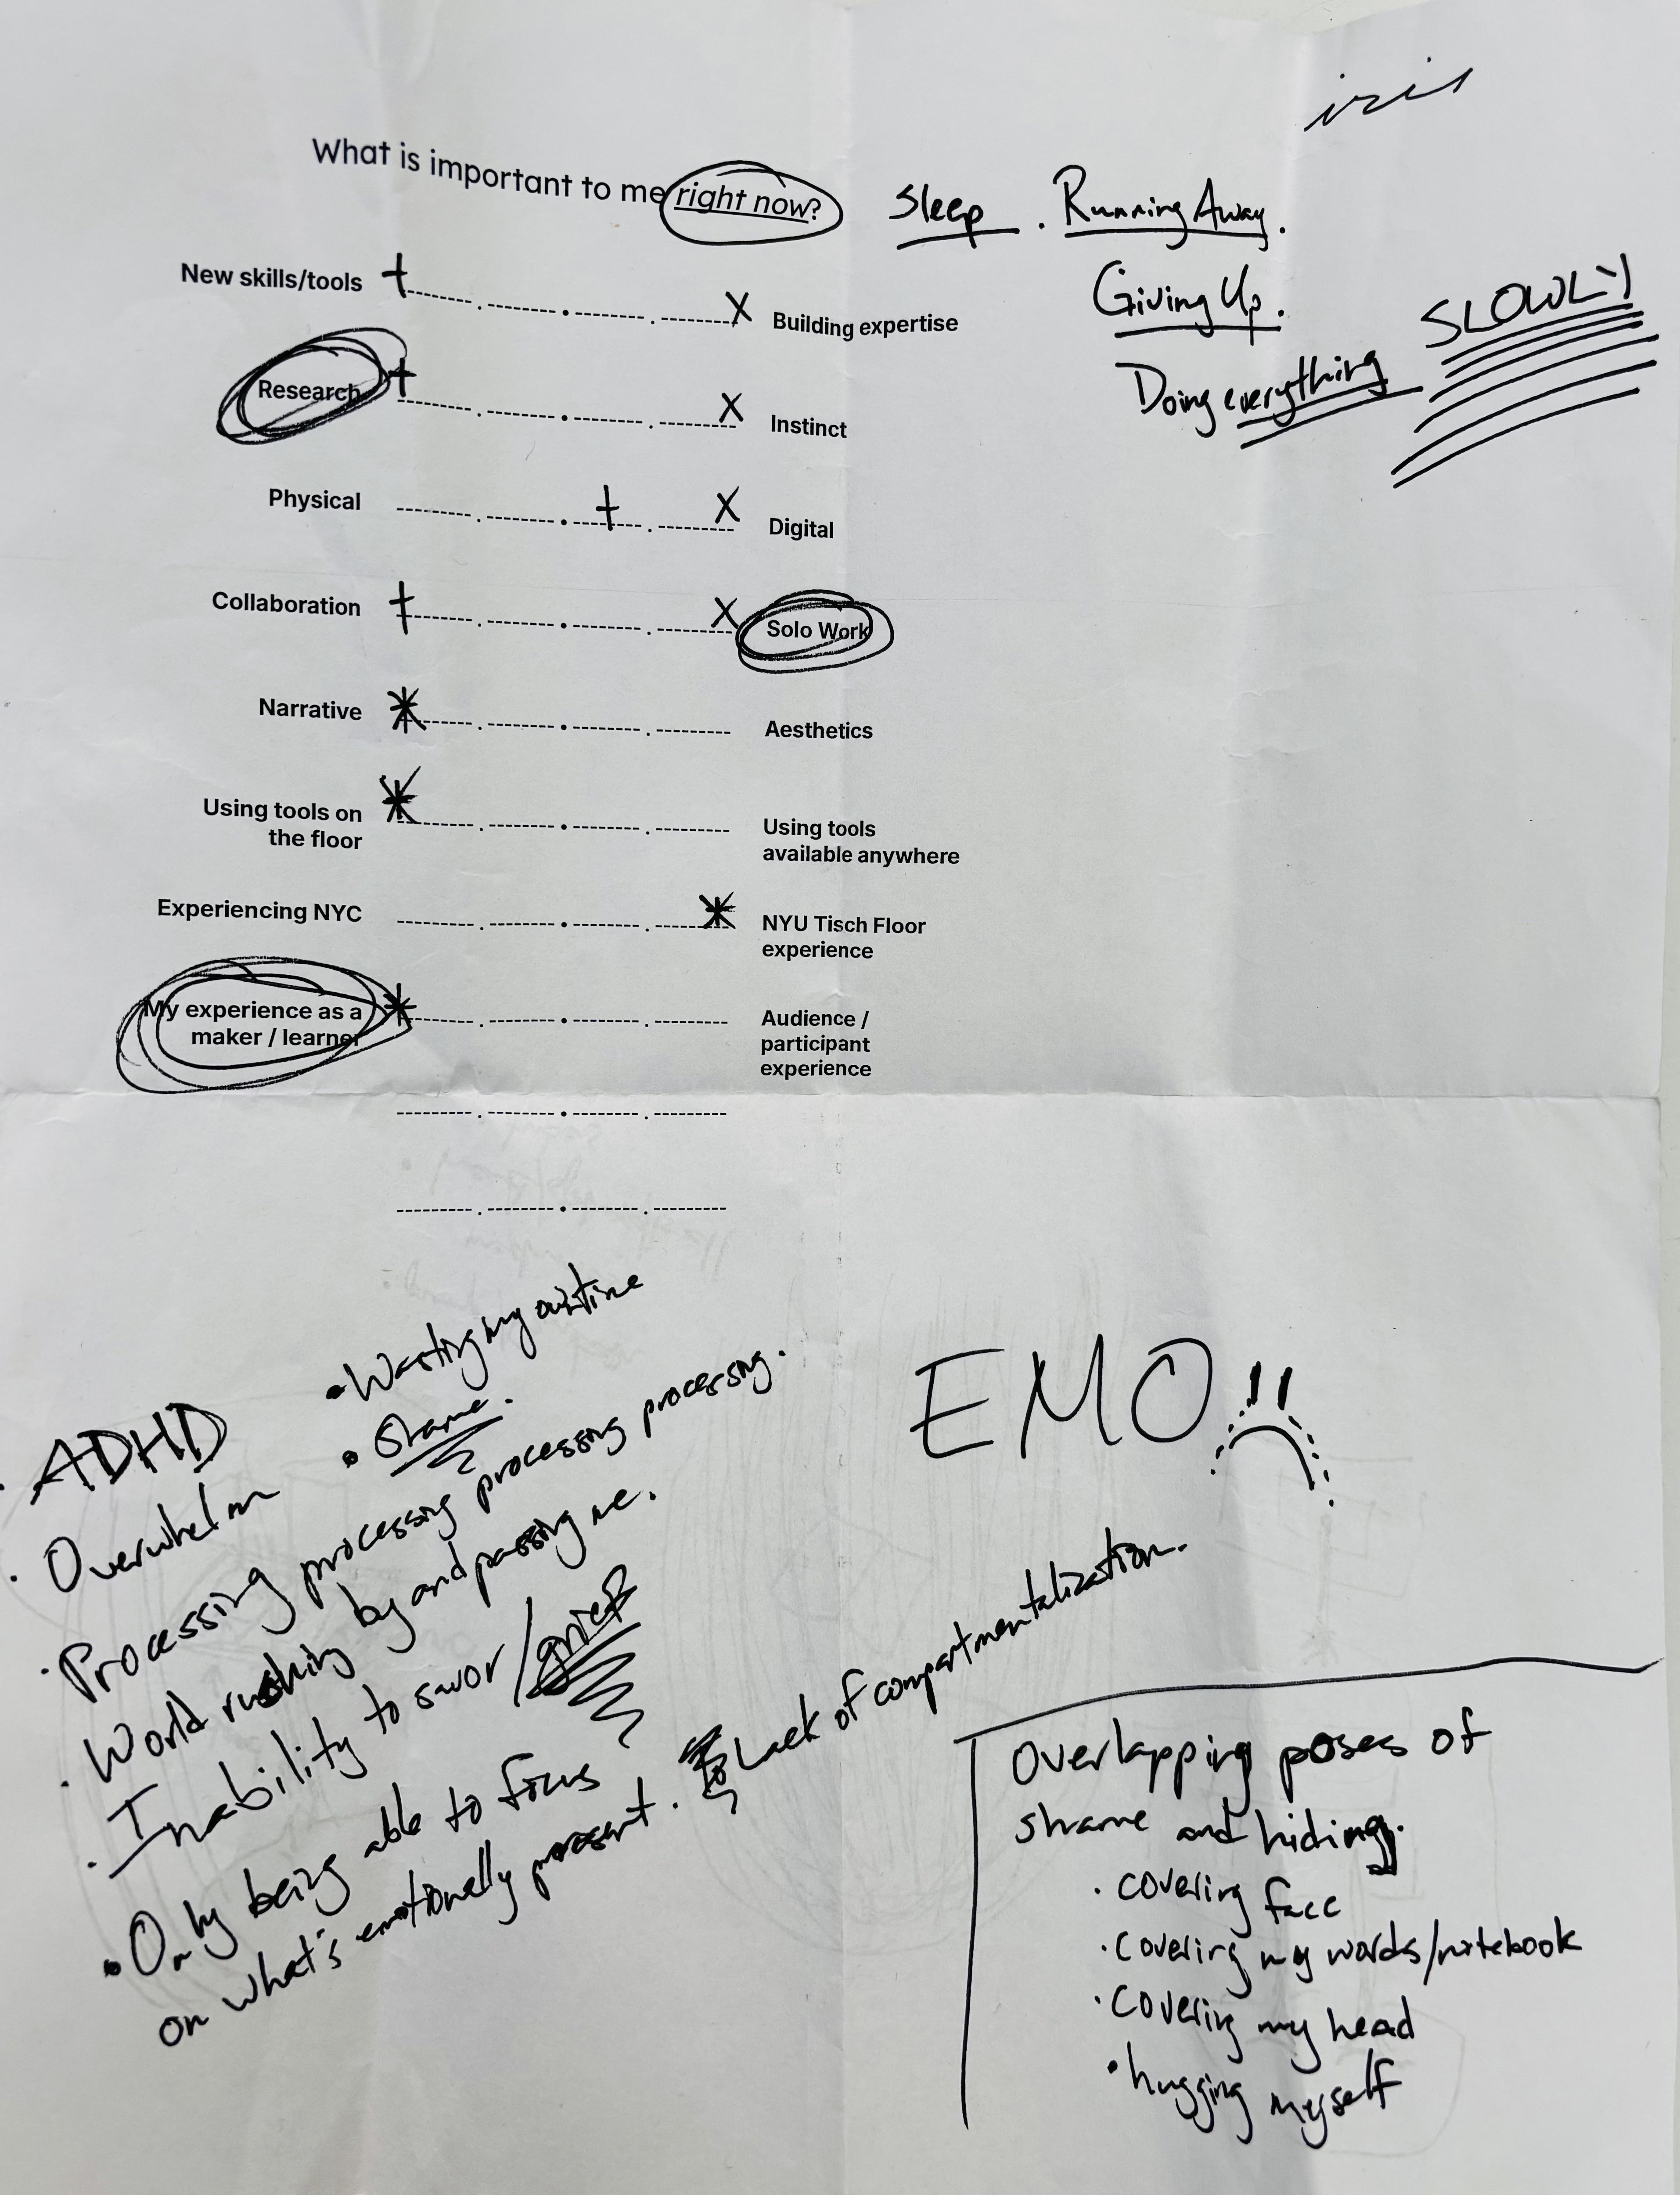 iris
What is important to me right now?
Sleep. Running Away.
Giving Up.
Doing everything SLOWLY
New skills/tools
Building expertise
Research
Instinct
Physical
Digital
Collaboration
Solo Work
Narrative
Aesthetics
Using tools on
the floor
Using tools
available anywhere
Experiencing NYC
NYU Tisch Floor
experience
My experience as a
maker / learner
Audience /
participant
experience
• Wasting my
• Shame.
· ADHD
· Overwhelm
· Processing processing processing processing.
· World rushing by and passing me.
· Inability to savor/grief
• Only being able to focus
on what's emotionally present.
Lack of compartmentalization.
EMO
Overlapping poses of
shame and hiding.
· covering face
· covering my words/notebook
· covering my head
• hugging myself